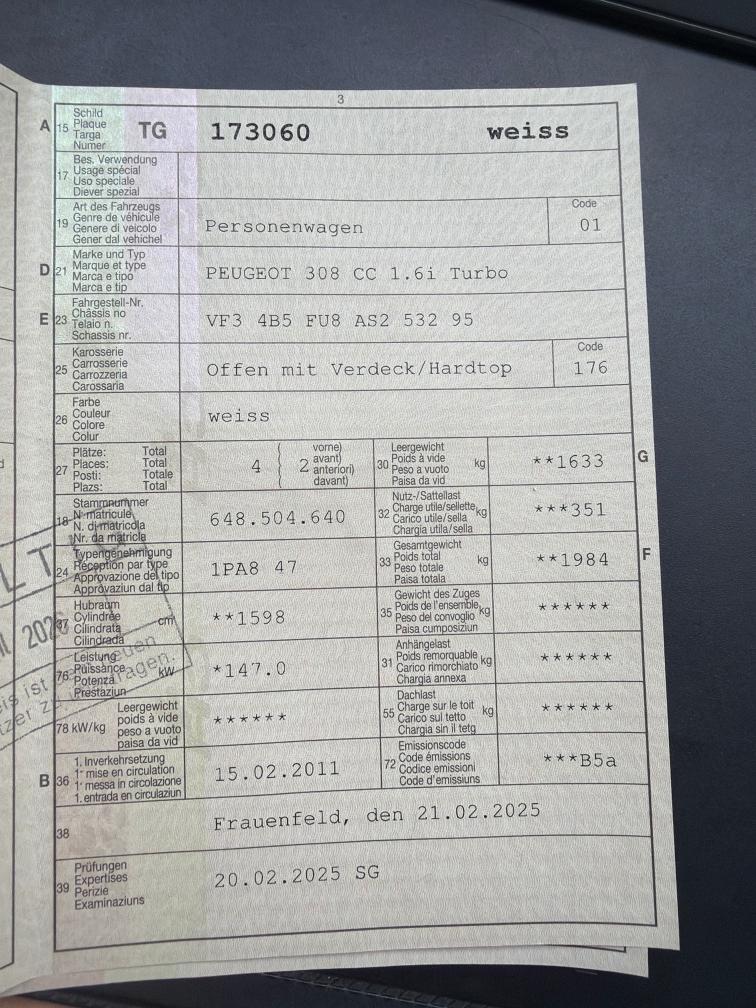 3
A 15 Schild
Plaque
Targa
Numer
TG 173060 weiss
17 Bes. Verwendung
Usage spécial
Uso speciale
Diever spezial
19 Art des Fahrzeugs
Genre de véhicule
Genere di veicolo
Gener dal vehichel
Personenwagen
Code
01
D 21 Marke und Typ
Marque et type
Marca e tipo
Marca e tip
PEUGEOT 308 CC 1.6i Turbo
E 23 Fahrgestell-Nr.
Châssis no
Telaio n.
Schassis nr.
VF3 4B5 FU8 AS2 532 95
25 Karosserie
Carrosserie
Carrozzeria
Carossaria
Offen mit Verdeck/Hardtop
Code
176
26 Farbe
Couleur
Colore
Colur
weiss
27 Plätze: Total
Places: Total
Posti: Totale
Plazs: Total
4 ( 2 vorne)
avant)
anteriori)
davant)
30 Leergewicht
Poids à vide
Peso a vuoto
Paisa da vid
kg
**1633
G
18 Stammnummer
N° matricule
N. di matricola
Nr. da matricla
648.504.640
32 Nutz-/Sattellast
Charge utile/sellette
Carico utile/sella
Chargia utila/sella
kg
***351
24 Typengenehmigung
Réception par type
Approvazione del tipo
Approvaziun dal tip
1PA8 47
33 Gesamtgewicht
Poids total
Peso totale
Paisa totala
kg
**1984
F
37 Hubraum
Cylindrée
Cilindrata
Cilindrada
cm³
**1598
35 Gewicht des Zuges
Poids de l'ensemble
Peso del convoglio
Paisa cumposiziun
kg
******
76 Leistung
Puissance
Potenza
Prestaziun
kW
*147.0
31 Anhängelast
Poids remorquable
Carico rimorchiato
Chargia annexa
kg
******
78 kW/kg Leergewicht
poids à vide
peso a vuoto
paisa da vid
******
55 Dachlast
Charge sur le toit
Carico sul tetto
Chargia sin il tetg
kg
******
B 36 1. Inverkehrsetzung
1re mise en circulation
1a messa in circolazione
1. entrada en circulaziun
15.02.2011
72 Emissionscode
Code émissions
Codice emissioni
Code d'emissiuns
***B5a
38
Frauenfeld, den 21.02.2025
39 Prüfungen
Expertises
Perizie
Examinaziuns
20.02.2025 SG
LT
is ist
neuen
tzer